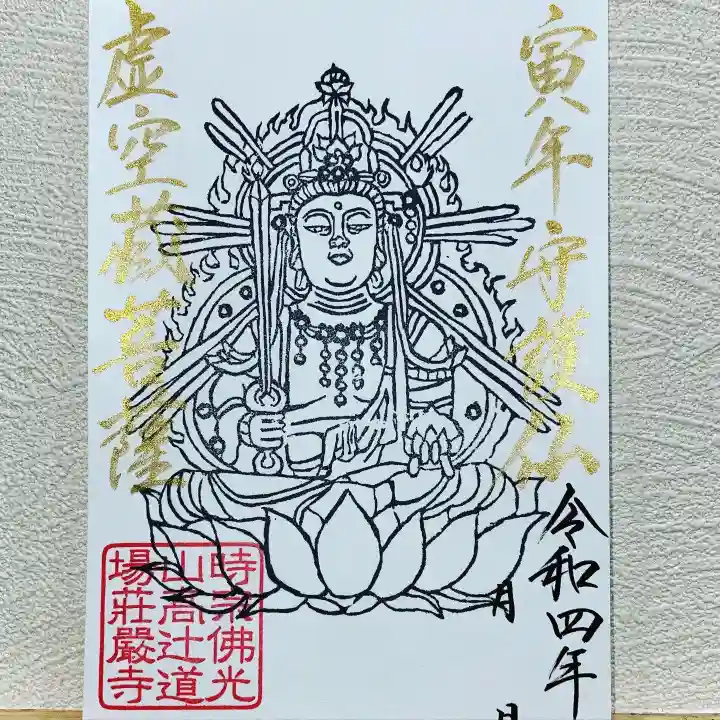 寅年守護仏
令和四年
月
日
虚空蔵菩薩
時宗佛光
山高辻道
場荘嚴寺